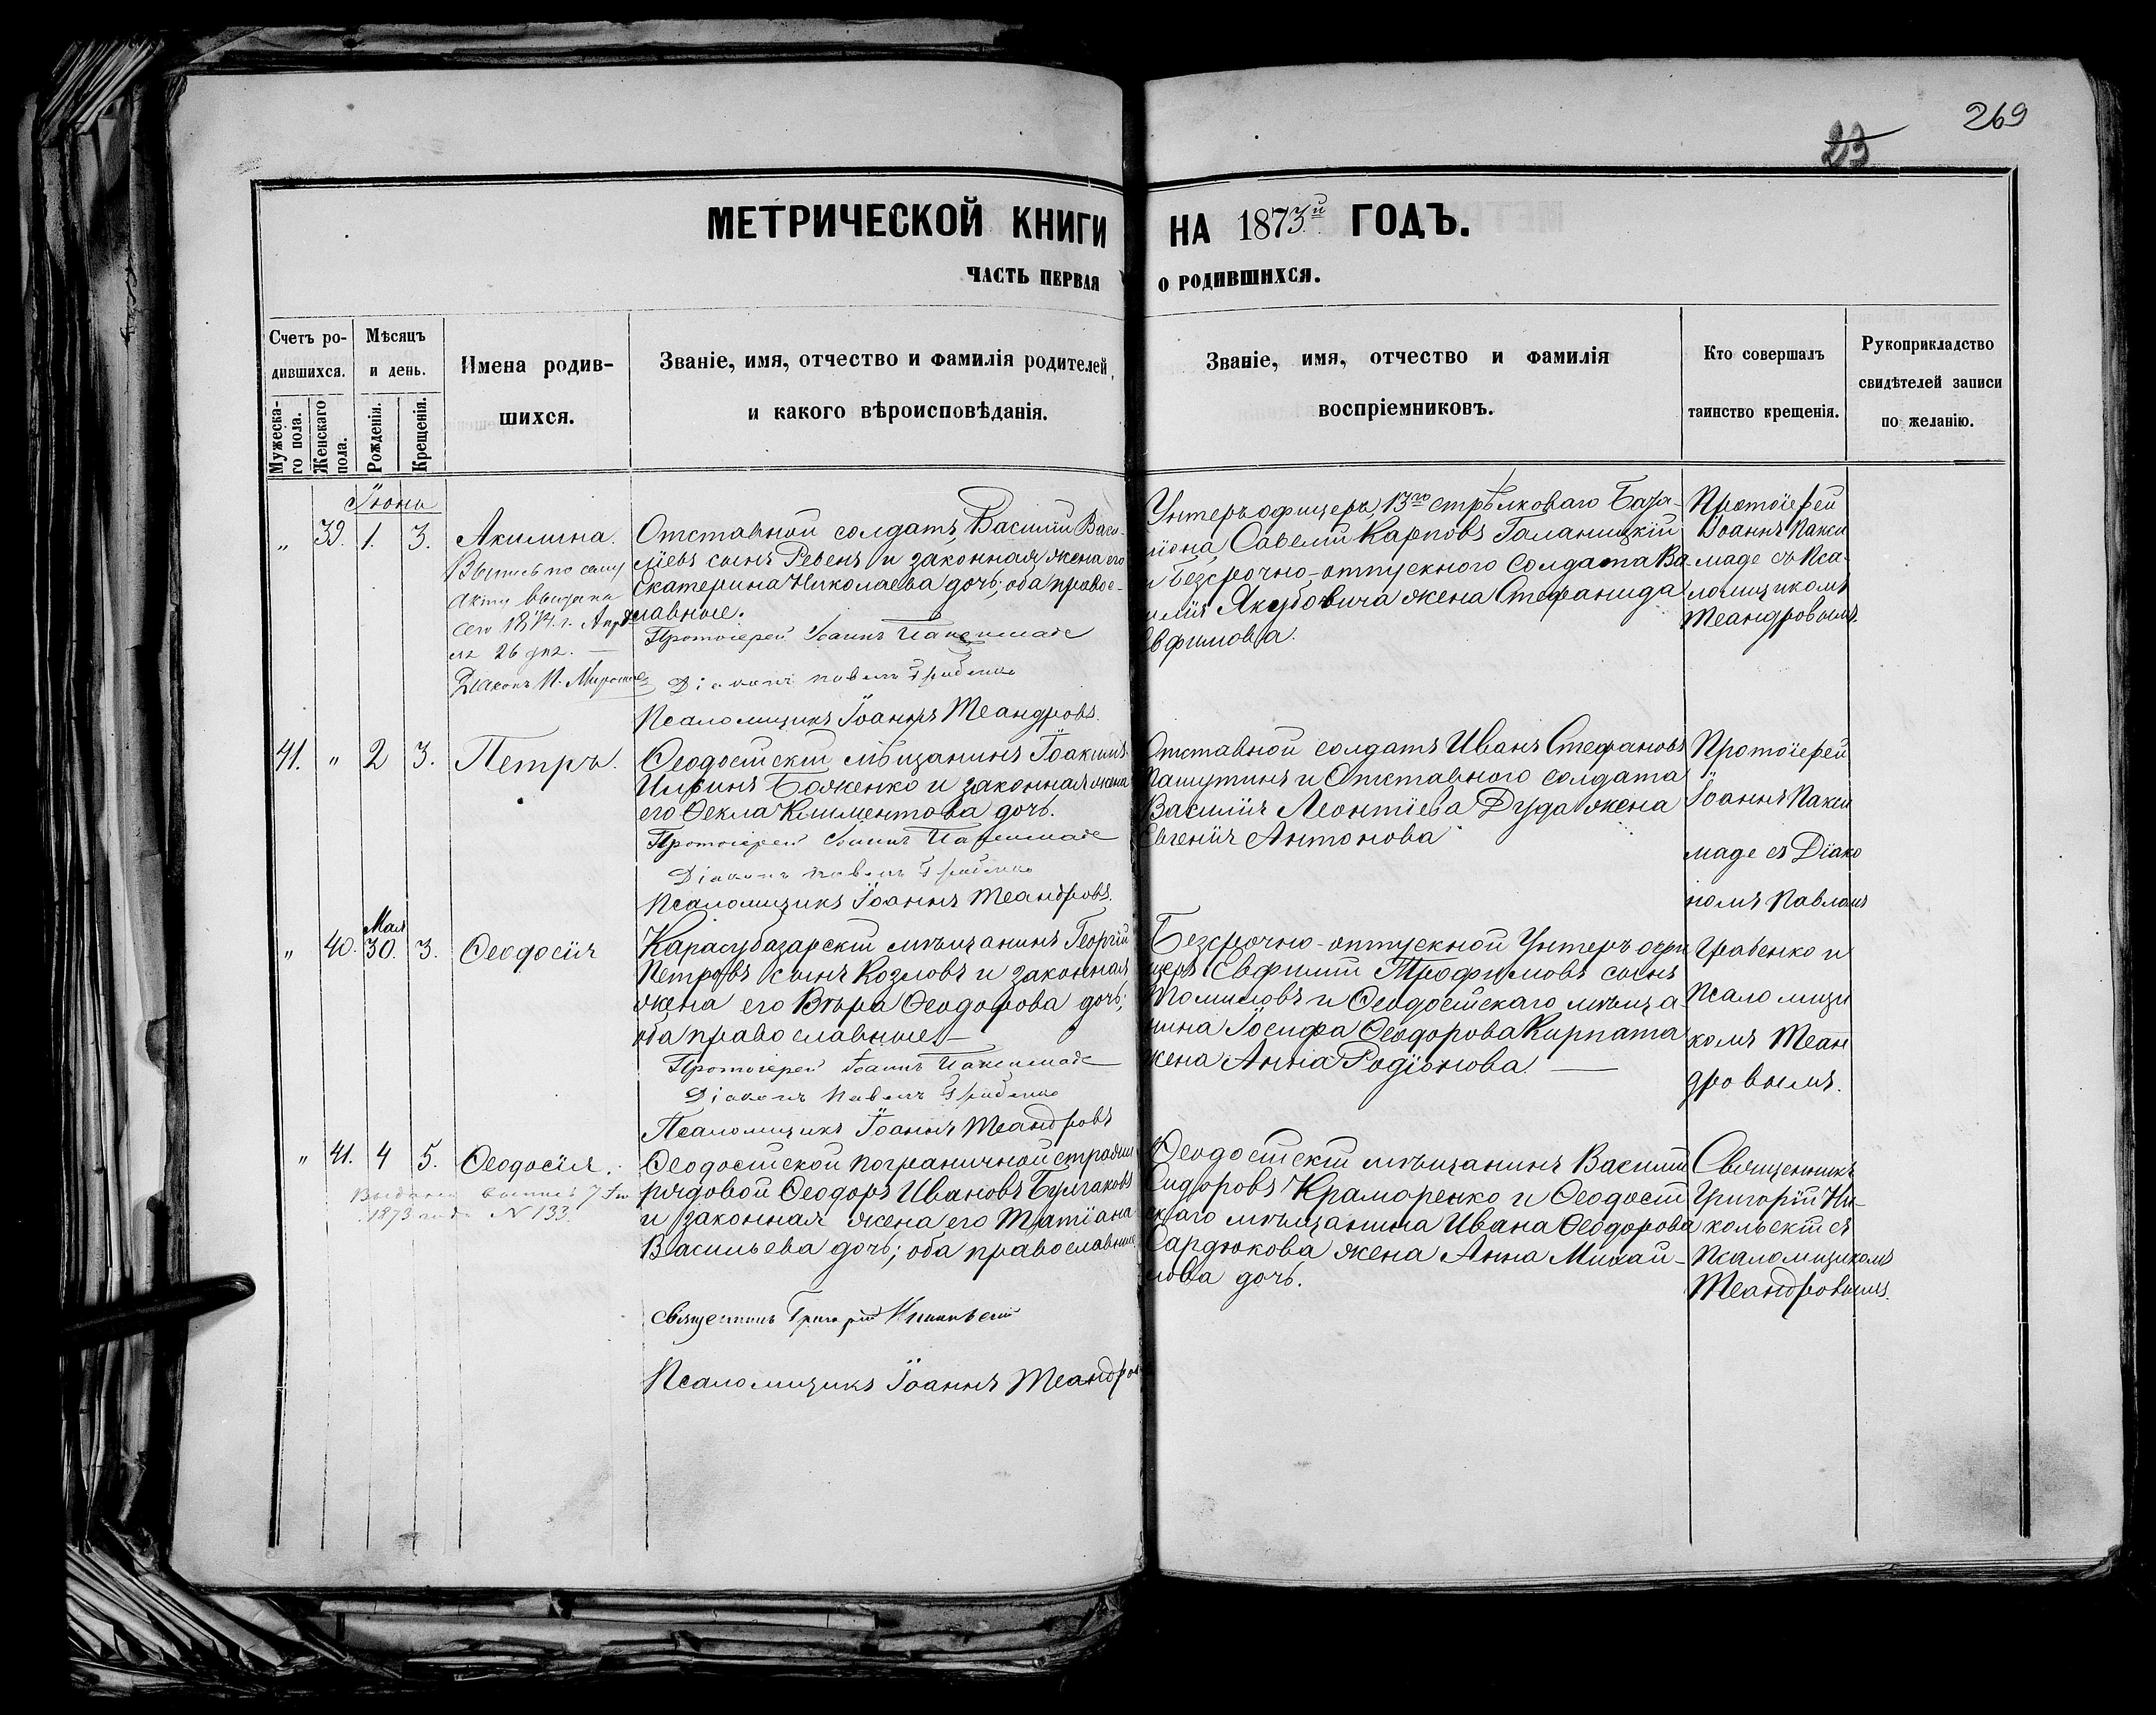 269
23
МЕТРИЧЕСКОЙ КНИГИ НА 1873й ГОДЪ.
ЧАСТЬ ПЕРВАЯ О РОДИВШИХСЯ.
Счетъ ро-
дившихся.
Мужеска-
го пола.
Женскаго
пола.
Мѣсяцъ
и день.
Рожденія.
Крещенія.
Имена родив-
шихся.
Званіе, имя, отчество и фамилія родителей,
и какого вѣроисповѣданія.
Званіе, имя, отчество и фамилія
воспріемниковъ.
Кто совершалъ
таинство крещенія.
Рукоприкладство
свидѣтелей записи
по желанію.
Іюнь
„ 39. 1. 3. Акилина.
Выпись по сему
акту выдана
сего 1874 г. Апрѣ
ля 26 дня.
Діаконъ П.
Отставной солдатъ, Василій Васи-
ліевъ сынъ Ревенъ и законная жена его
Екатерина Николаева дочь; оба правос-
лавные.
Протоіерей Іоаннъ Пакси маде
Діаконъ Павелъ Грабенко
Псаломщикъ Іоаннъ Теандровъ.
Унтеръофицеръ, 13го стрѣлковаго Бата-
ліона, Савелій Карповъ Галаницкій
и безсрочно-отпускного солдата Ва-
силія Якубовича жена Стефанида
Евфимова.
Протоіерей
Іоаннъ Пакси
маде съ Пса-
ломщикомъ
Теандровымъ.
41. „ 2 3. Петръ.
Ѳеодосійскій мѣщанинъ Іоакимъ
Ильинъ Боженко и законная жена
его Ѳекла Климентова дочь.
Протоіерей Іоаннъ Пакси маде
Діаконъ Павелъ Грабенко
Псаломщикъ Іоаннъ Теандровъ.
Отставной солдатъ Иванъ Стефановъ
Пашутинъ и Отставного солдата
Василія Леонтіева Дуда жена
Евгенія Антонова
Протоіерей
Іоаннъ Пакси
маде съ Діако
номъ Павломъ
Грабенко и
Псаломщи
комъ Теан
дровымъ.
Мая
„ 40. 30. 3. Ѳеодосія
Карасубазарскій мѣщанинъ Георгій
Петровъ сынъ Козловъ и законная
жена его Вѣра Ѳеодорова дочь;
оба православные.—
Протоіерей Іоаннъ Пакси маде
Діаконъ Павелъ Грабенко
Псаломщикъ Іоаннъ Теандровъ
Безсрочно-отпускной Унтеръ офи
церъ Евфимій Трофимовъ сынъ
Томиловъ и Ѳеодосійскаго мѣща-
нина Іосифа Ѳеодорова Кирпата
жена Анна Родіонова.—
„ 41. 4 5. Ѳеодосія.
1873 года № 133.
Ѳеодосійской пограничной стражи
рядовой Ѳеодоръ Ивановъ Булгаковъ
и законная жена его Татіана
Васильева дочь; оба православные.
Священникъ Григорій Никольскій
Псаломщикъ Іоаннъ Теандров
Ѳеодосійскій мѣщанинъ Василій
Сидоровъ Краморенко и Ѳеодосій
скаго мѣщанина Ивана Ѳеодорова
Сардюкова жена Анна Михай-
лова дочь.
Священникъ
Григорій Ни-
кольскій съ
Псаломщикомъ
Теандровымъ.